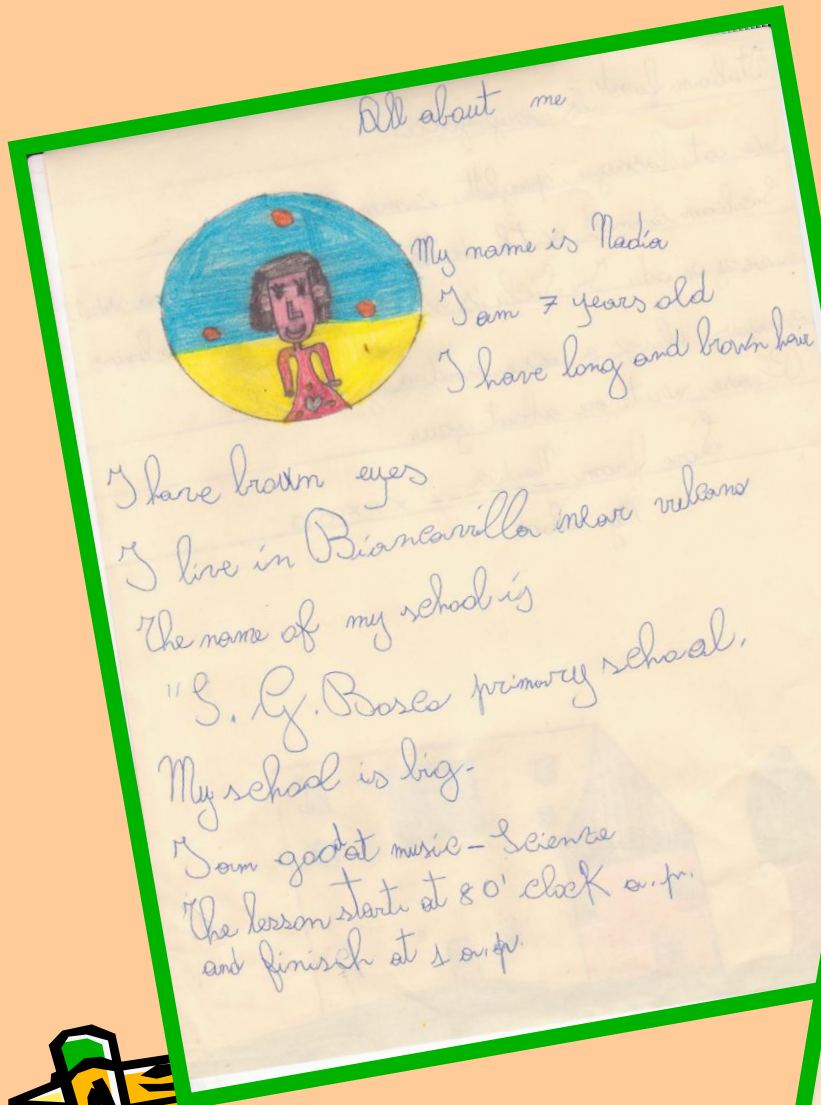 All about me
My name is Nadia
I am 7 years old
I have long and brown hair
I have brown eyes
I live in Biancavilla near vulcano
The name of my school is
"S. G. Bosco primary school.
My school is big-
I am good at music - Science
The lesson starts at 8 o' clock a.p.
and finisch at 1 a.p.